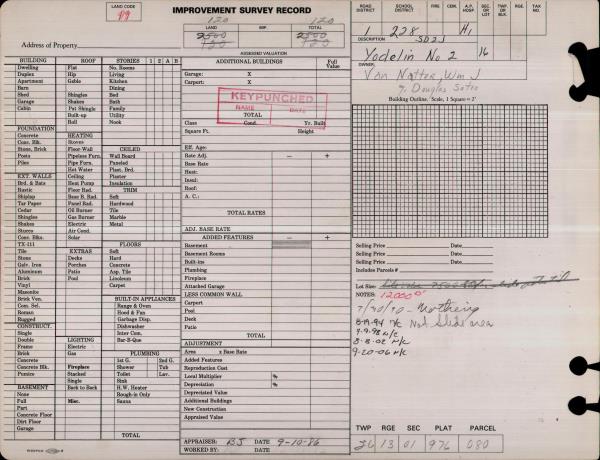 LAND CODE
99
IMPROVEMENT SURVEY RECORD
120 120
LAND TOTAL
2500 2500
Address of Property
ASSESSED VALUATION
BUILDING ROOF STORIES 1 2 A B
Dwelling Flat No. Rooms
Duplex Hip Living
Apartment Gable Kitchen
Barn Dining
Shed Shingles Bed
Garage Shakes Bath
Cabin Pat Shingle Family
Built-up Utility
Roll Nook
FOUNDATION
Concrete HEATING
Conc. Blk. Stoves
Stone, Brick Floor-Wall CEILED
Posts Pipeless Furn. Wall Board
Piles Pipe Furn. Paneled
Hot Water Plast. Brd.
EXT. WALLS Ceiling Plaster
Brd. & Bats Heat Pump Insulation
Rustic Floor Rad. TRIM
Shiplap Base B. Rad. Soft
Tar Paper Panel Rad. Hardwood
Cedar Oil Burner Tile
Shingles Gas Burner Marble
Shakes Electric Metal
Stores Air Cond.
Conc. Blks Solar
TX-111 FLOORS
Tile EXTRAS Soft
Stone Decks Hard
Galv. Iron Porches Concrete
Aluminum Patio Asp. Tile
Brick Pool Linoleum
Vinyl Carpet
Masonite
Brick Ven. BUILT-IN APPLIANCES
Com. Sel. Range & Oven
Roman Hood & Fan
Rugged Garbage Disp.
CONSTRUCT. Dishwasher
Single Inter Com.
Double LIGHTING Bar-B-Que
Frame Electric
Brick Gas PLUMBING
Concrete 1st G. 2nd G.
Concrete Blk. Fireplace Shower Tub
Pumice Stacked Toilet Lav.
Single Sink
BASEMENT Back to Back H.W. Heater
None Rough-in Only
Full Misc. Sauna
Part
Concrete Floor
Dirt Floor
Garage
TOTAL
ADDITIONAL BUILDINGS Full Value
Garage: X
Carport: X
KEYPUNCHED
NAME DATE
Utility
TOTAL
Class Cond. Yr. Built
Square Ft. Height
Eff. Age:
Rate Adj. — +
Base Rate
Heat:
Insul:
Roof:
A. C.:
TOTAL RATES
ADJ. BASE RATE
ADDED FEATURES — +
Basement
Basement Rooms
Built-ins
Plumbing
Fireplace
Attached Garage
LESS COMMON WALL
Carport
Pool
Deck
Patio
TOTAL
ADJUSTMENT
Area x Base Rate
Added Features
Reproduction Cost
Local Multiplier %
Depreciation %
Depreciated Value
Additional Buildings
New Construction
Appraised Value
APPRAISER: BJ DATE 9-10-86
WORKED BY: DATE
ROAD DISTRICT SCHOOL DISTRICT CEM. DIST. A.P. HOSP SEC. OR LOT TWP. OR BLK. RGE TAX NO.
228 H1
DESCRIPTION
Yodelin No 2 16
OWNER
Van Natter, Wm J
% Douglas
Building Outline, Scale, 1 Square = 2'
Selling Price Date
Selling Price Date
Selling Price Date
Includes Parcels #
Lot Size:
NOTES: 12,000
7/30/90 - Nothing
8-19-94 N/C Not Slide area
7-9-98 N/C
8-8-02 N/C
9-20-06 N/C
TWP RGE SEC PLAT PARCEL
26 13 01 976 080